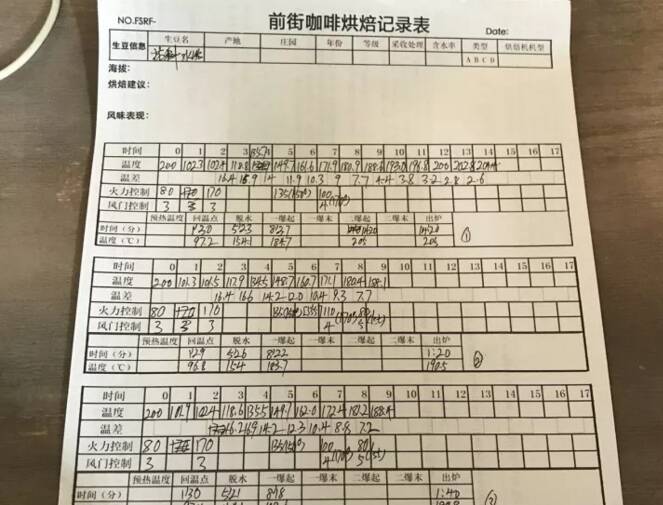 NO.FSRF- 前街咖啡烘焙记录表 Date:
生豆信息 生豆名 产地 庄园 年份 等级 采收处理 含水率 类型 烘焙机机型
A B C D
海拔:
烘焙建议:
风味表现:
时间 0 1 2 3 4 5 6 7 8 9 10 11 12 13 14 15 16 17
温度 200 102.3 102.4 118.8 149.7 161.6 171.9 180.9 188.6 193.0 196.8 200 202.8
温差 16.4 15.9 14 11.9 10.3 9 7.7 4.4 3.8 3.2 2.8 2.6
火力控制 80 170 135(150°) 100
风门控制 3 3 3 4(170°)
预热温度 回温点 脱水 一爆起 一爆末 二爆起 二爆末 出炉
时间(分) 1'30 5'23 14:20 14:20
温度(℃) 97.2 154.1 184.7 205 205
①
时间 0 1 2 3 4 5 6 7 8 9 10 11 12 13 14 15 16 17
温度 200 101.3 101.5 117.9 134.5 148.7 160.7 171.1 180.4 188.1
温差 16.4 16.6 14.2 12.0 10.4 9.3 7.7
火力控制 80 170 110 80
风门控制 3 3 3 4(170°)
预热温度 回温点 脱水 一爆起 一爆末 二爆起 二爆末 出炉
时间(分) 1'29 5'26 8'22 1:20
温度(℃) 96.8 154 183.7 190.5
②
时间 0 1 2 3 4 5 6 7 8 9 10 11 12 13 14 15 16 17
温度 200 101.9 102.4 118.6 135.5 149.7 162.0 172.4 181.2 188.4
温差 16.2 16.9 14.2 12.3 10.4 8.8 7.2
火力控制 80 170 135(150°) 100 80
风门控制 3 3 4(170°)
预热温度 回温点 脱水 一爆起 一爆末 二爆起 二爆末 出炉
时间(分) 1'30 5'21 1:40
③